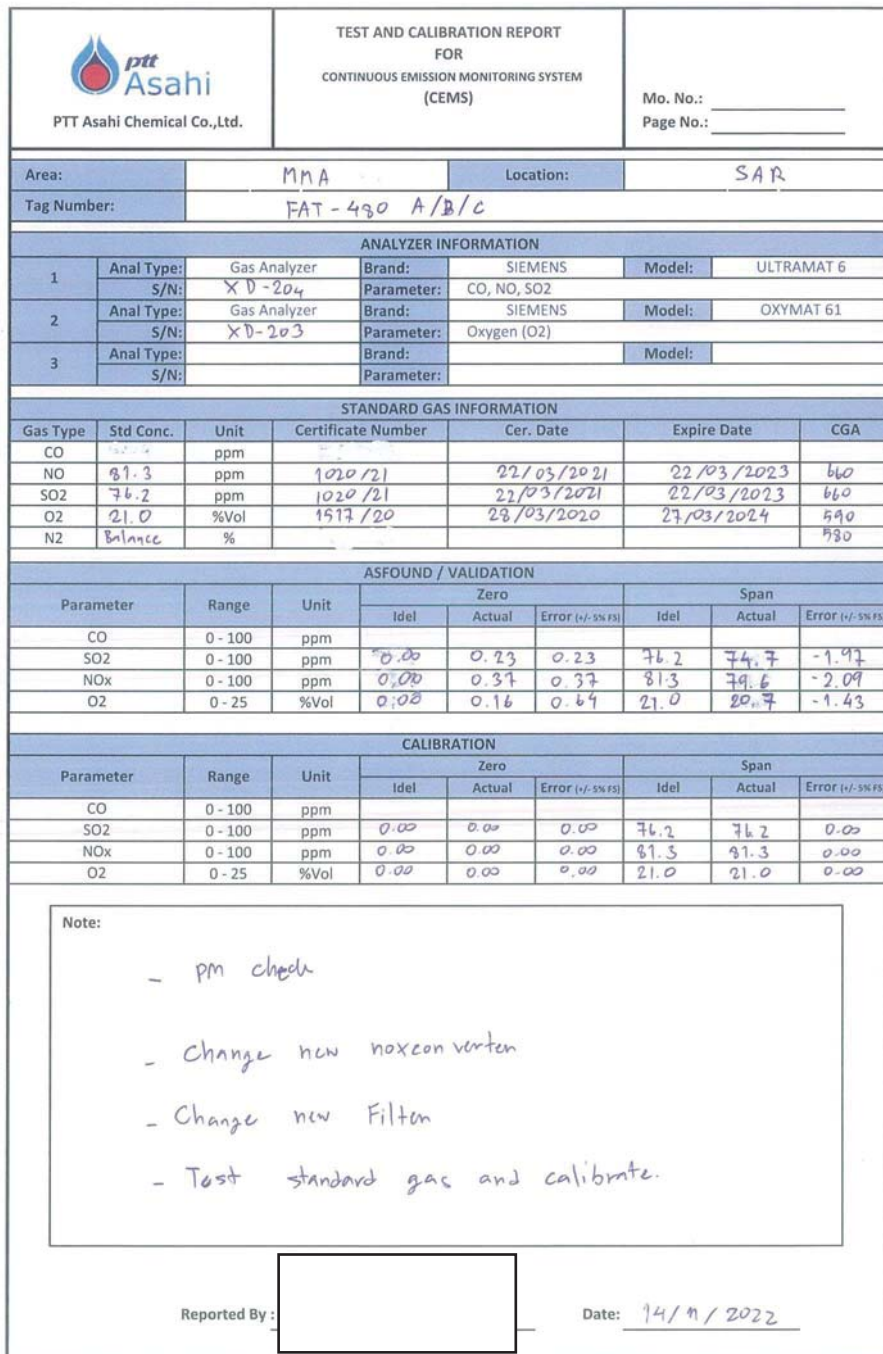 ptt
Asahi
PTT Asahi Chemical Co.,Ltd.
TEST AND CALIBRATION REPORT
FOR
CONTINUOUS EMISSION MONITORING SYSTEM
(CEMS)
Mo. No.:
Page No.:
Area: MMA Location: SAR
Tag Number: FAT-480 A/B/C
ANALYZER INFORMATION
1 Anal Type: Gas Analyzer Brand: SIEMENS Model: ULTRAMAT 6
S/N: XD-204 Parameter: CO, NO, SO2
2 Anal Type: Gas Analyzer Brand: SIEMENS Model: OXYMAT 61
S/N: XD-203 Parameter: Oxygen (O2)
3 Anal Type: Brand: Model:
S/N: Parameter:
STANDARD GAS INFORMATION
Gas Type Std Conc. Unit Certificate Number Cer. Date Expire Date CGA
CO ppm
NO 81.3 ppm 1020/21 22/03/2021 22/03/2023 660
SO2 76.2 ppm 1020/21 22/03/2021 22/03/2023 660
O2 21.0 %Vol 1517/20 28/03/2020 27/03/2024 590
N2 Balance % 580
ASFOUND / VALIDATION
Parameter Range Unit Zero Span
Idel Actual Error (+/- 5% FS) Idel Actual Error (+/- 5% FS
CO 0 - 100 ppm
SO2 0 - 100 ppm 0.00 0.23 0.23 76.2 74.7 -1.97
NOx 0 - 100 ppm 0.00 0.37 0.37 81.3 79.6 -2.09
O2 0 - 25 %Vol 0.00 0.16 0.64 21.0 20.7 -1.43
CALIBRATION
Parameter Range Unit Zero Span
Idel Actual Error (+/- 5% FS) Idel Actual Error (+/- 5% FS
CO 0 - 100 ppm
SO2 0 - 100 ppm 0.00 0.00 0.00 76.2 76.2 0.00
NOx 0 - 100 ppm 0.00 0.00 0.00 81.3 81.3 0.00
O2 0 - 25 %Vol 0.00 0.00 0.00 21.0 21.0 0.00
Note:
- PM check
- Change new noxconverter
- Change new Filter
- Test standard gas and calibrate.
Reported By : Date: 14/11/2022